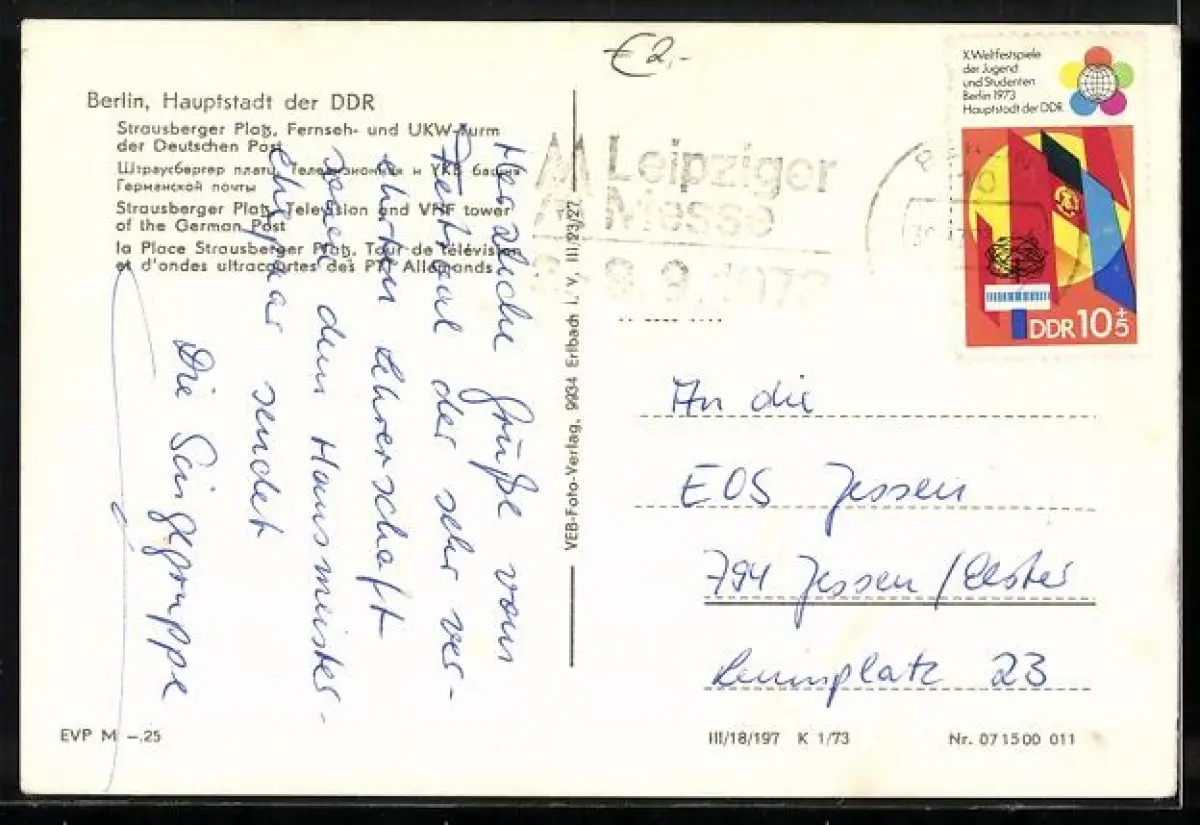 €2,-
Berlin, Hauptstadt der DDR
Strausberger Platz, Fernseh- und UKW-Turm
der Deutschen Post
Штраусбергер платц, Телевизионная и УКВ башня
Германской почты
Strausberger Platz, Television and VHF tower
of the German Post
la Place Strausberger Platz, Tour de télévision
et d'ondes ultracourtes des PTT Allemands
Herzliche Grüße vom
Festival der sehr ver-
ehrten Lehrerschaft
sowie dem Hausmeister-
ehepaar sendet
Die Singegruppe
EVP M –.25
VEB-Foto-Verlag, 9934 Erlbach i. V. III/23/27
Leipziger
Messe
9.9.1973
X. Weltfestspiele
der Jugend
und Studenten
Berlin 1973
Hauptstadt der DDR
DDR 10+5
An die
EOS Jessen
794 Jessen/Elster
Leninplatz 23
III/18/197 K 1/73
Nr. 07 15 00 011